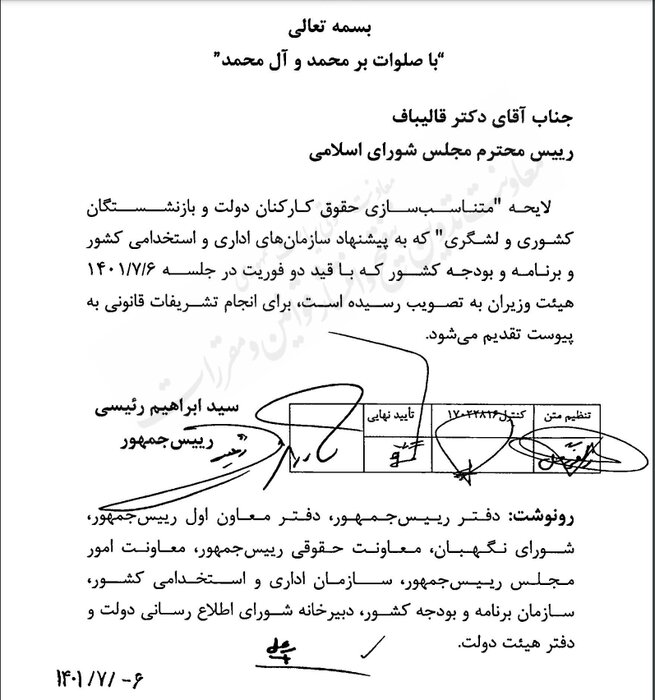 بسمه تعالی
“با صلوات بر محمد و آل محمد”
جناب آقای دکتر قالیباف
رییس محترم مجلس شورای اسلامی
لایحه "متناسب‌سازی حقوق کارکنان دولت و بازنشستگان
کشوری و لشگری" که به پیشنهاد سازمان‌های اداری و استخدامی کشور
و برنامه و بودجه کشور که با قید دو فوریت در جلسه ۱۴۰۱/۷/۶
هیئت وزیران به تصویب رسیده است، برای انجام تشریفات قانونی به
پیوست تقدیم می‌شود.
سید ابراهیم رئیسی
رییس‌جمهور
تنظیم متن
کنترل ۱۷۰۲۲۸۱۶
تأیید نهایی
رونوشت: دفتر رییس‌جمهور، دفتر معاون اول رییس‌جمهور،
شورای نگهبان، معاونت حقوقی رییس‌جمهور، معاونت امور
مجلس رییس‌جمهور، سازمان اداری و استخدامی کشور،
سازمان برنامه و بودجه کشور، دبیرخانه شورای اطلاع رسانی دولت و
دفتر هیئت دولت.
۱۴۰۱/۷/-۶